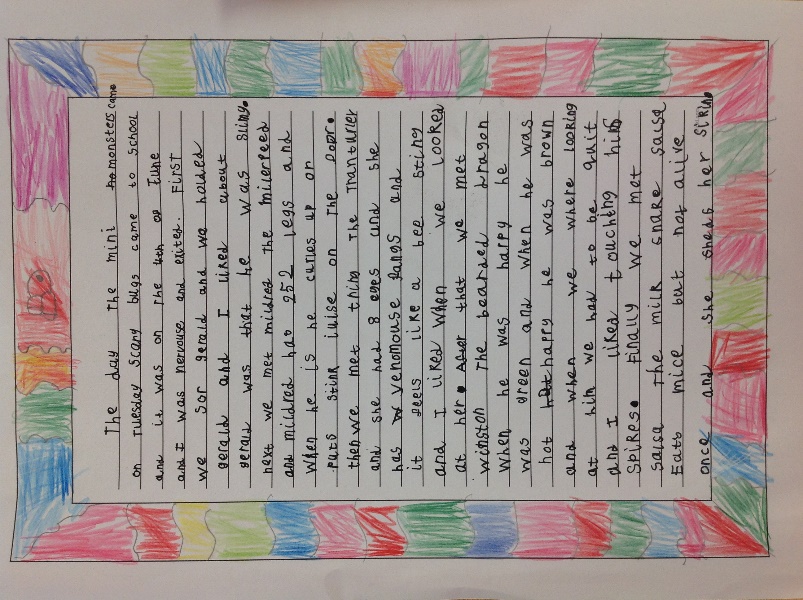 The day The mini monsters came
on Tuesday scary bugs came to school
and it was on the 4th of June
and I was nervouse and exited. First
we sor gerald and we holded
gerald and I liked about
gerald was that he was slimy.
next we met mildred the milerpeed
and mildred had 252 legs and
when he is he curles up or
puts stink juise on the door.
then we met thing The Tranturler
and she had 8 eyes and she
has venomouse fangs and
it feels like a bee sting
and I liked when we looked
at her. After that we met
winston The bearded dragon
when he was happy he
was green and when he was
not happy he was brown
and when we where looking
at him we had to be quit
and I liked touching his
spikes. finally we met
salsa the milk snake salsa
Eats mice but not alive
once and she sheds her skin.